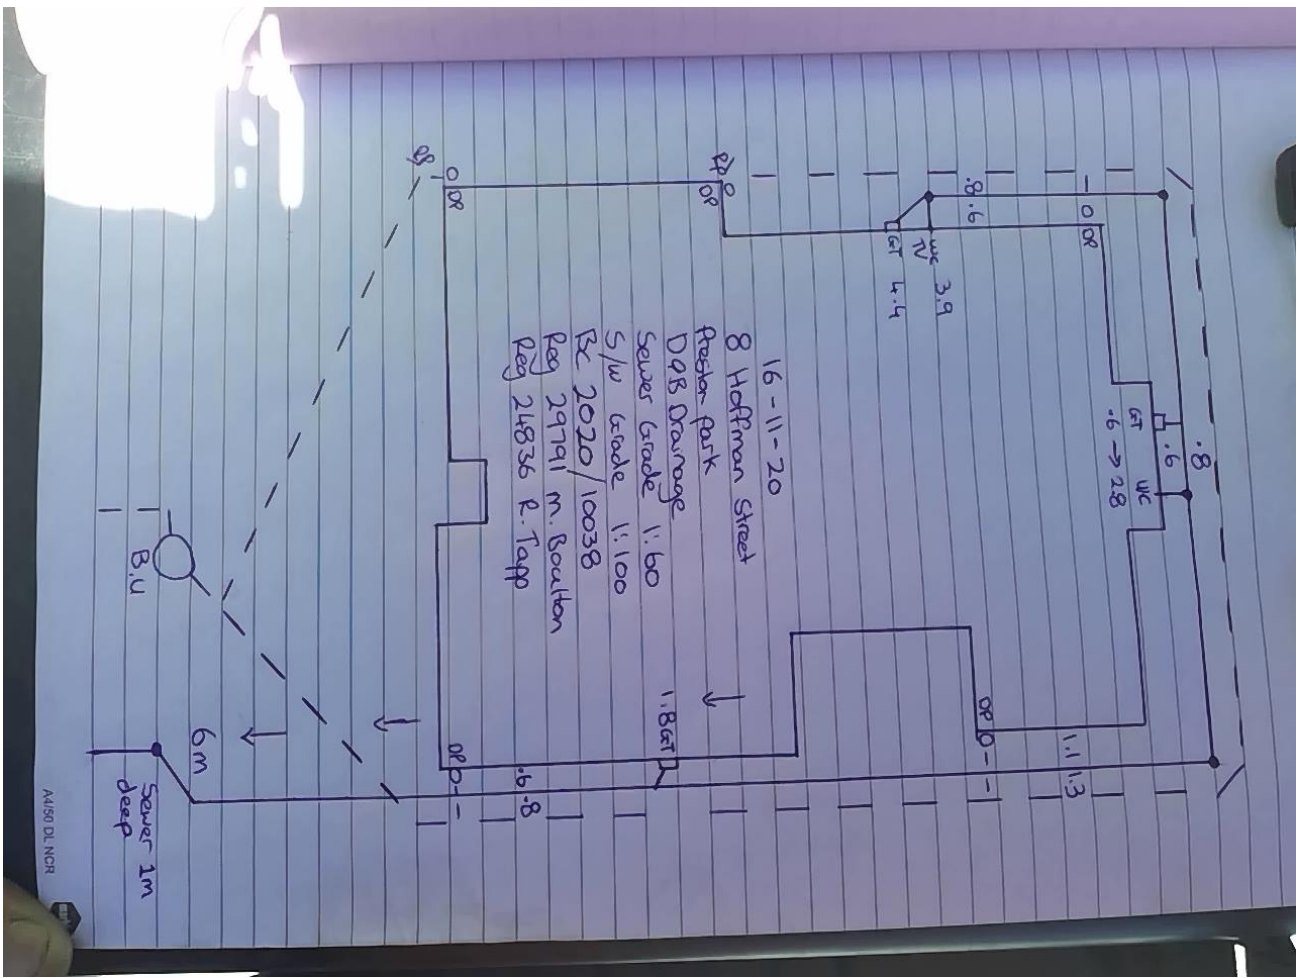 16-11-20
8 Hoffman Street
Preston Park
D9B Drainage
Sewer Grade 1:60
S/W Grade 1:100
BC 2020/10038
Reg 29791 M. Boulton
Reg 24836 R. Tapp
.8
.6
GT
WC
.6 → 2.8
DP
.8 .6
WC 3.9
TV
GT 4.4
DP
DP
DP
1.1
1.3
1.8 GT
DP
.6 .8
6m
B.U
Sewer 1m
deep
A4/50 DL NCR